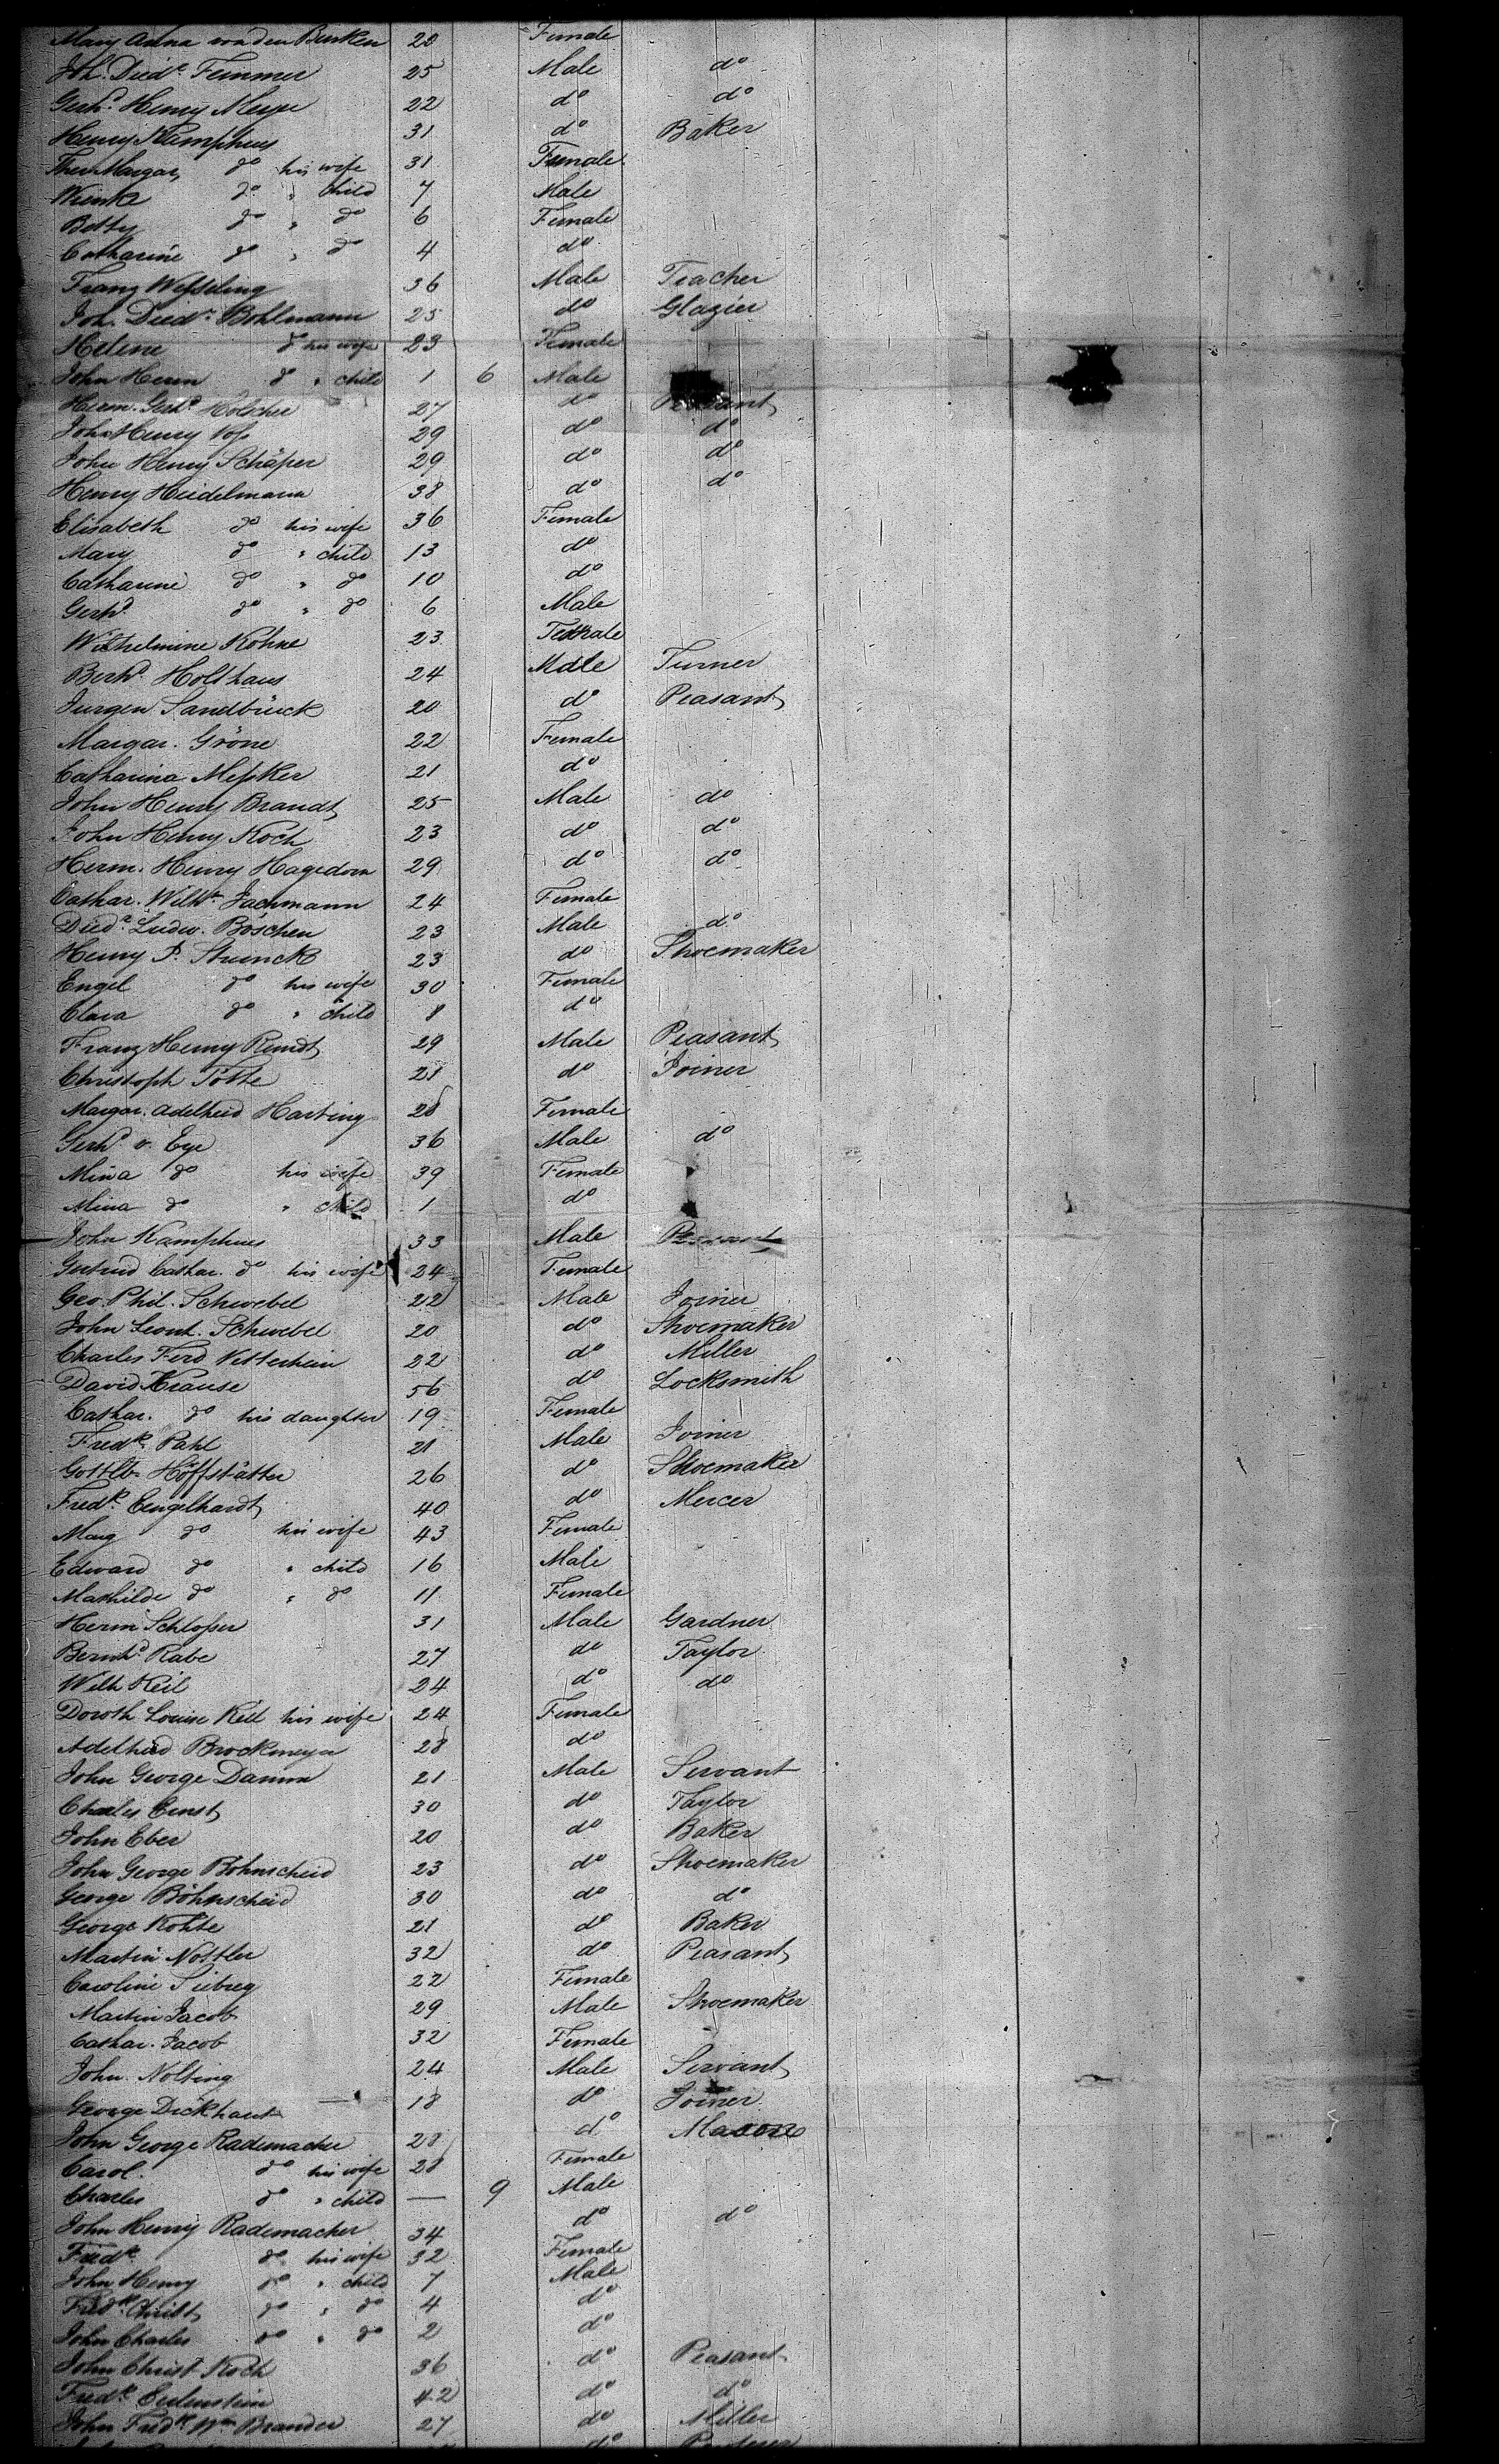 Mary Anna von den Birken 20 Female
Joh. Diedr. Timmer 25 Male do
Gerhd. Henry Meyer 22 do do
Henry Kamphues 31 do Baker
Margar. do his wife 31 Female
do " child 7 Male
Betty do " do 6 Female
Catharine do " do 4 do
Franz Weſseling 36 Male Teacher
Joh. Diedr. Bohlmann 25 do Glazier
Helene do his wife 23 Female
John Herm do " child 1 6 Male
Herm. Gerhd. Hölscher 27 do Peasant
John Henry Voſs 29 do do
John Henry Schäper 29 do do
Henry Heidelmann 38 do do
Elisabeth do his wife 36 Female
Mary do " child 13 do
Catharine do " do 10 do
Gerhd. do " do 6 Male
Wilhelmine Kohne 23 Female
Berhd. Holthaus 24 Male Turner
Jurgen Sandbrück 20 do Peasant
Margar. Gröne 22 Female
Catharina Meſsker 21 do
John Henry Brandt 25 Male do
John Henry Koch 23 do do
Herm. Henry Hagedorn 29 do do
Cathar. Wilhe. Jachmann 24 Female
Diedr. Ludw. Böschen 23 Male do
Henry P. Strunck 23 do Shoemaker
Engel do his wife 30 Female
Clara do " child 8 do
Franz Henry 29 Male Peasant
Christoph Tötte 21 do Joiner
Margar. Adelheid Harting 28 Female
Gerhd. v. Eye 36 Male do
Mina do his wife 39 Female
Mina do " child 1 do
John Kamphues 33 Male Peasant
Gertrud Cathar. do his wife 24 Female
Geo. Phil. Schwebel 22 Male Joiner
John Leonh. Schwebel 20 do Shoemaker
Charles Ferd 22 do Miller
David Krause 56 do Locksmith
Cathar. do his daughter 19 Female
Fredk. Pahl 21 Male Joiner
Gottlb. Höffstätter 26 do Shoemaker
Fredk. Eengelhardt 40 do Mercer
Mary do his wife 43 Female
Edward do " child 16 Male
Mathilde do " do 11 Female
Herm Schloſser 31 Male Gardner
Bernhd. Rabe 27 do Taylor
Wilh Keil 24 do do
Doroth Louise Keil his wife 24 Female
Adelheid Brockmeyer 28 do
John George Damm 21 Male Servant
Charles Ernst 30 do Taylor
John Eber 20 do Baker
John George Böhnscheid 23 do Shoemaker
George Böhnscheid 30 do do
George Kohte 21 do Baker
Martin Nottler 32 do Peasant
Caroline Siebreg 22 Female
Martin Jacob 29 Male Shoemaker
Cathar. Jacob 32 Female
John. Nolting 24 Male Servant
George Dickhaut 18 do Joiner
John George Rademacher 28 do Mason
Carol. do his wife 28 Female
Charles do " child — 9 Male
John Henry Rademacher 34 do do
Fredk. do his wife 32 Female
John Henry do " child 7 Male
Fredk. Christ do " do 4 do
John Charles do " do 2 do
John Christ Koch 36 do Peasant
Fredk. Eulenstein 42 do do
John Fredk. Wm. Brander 27 do Miller
do